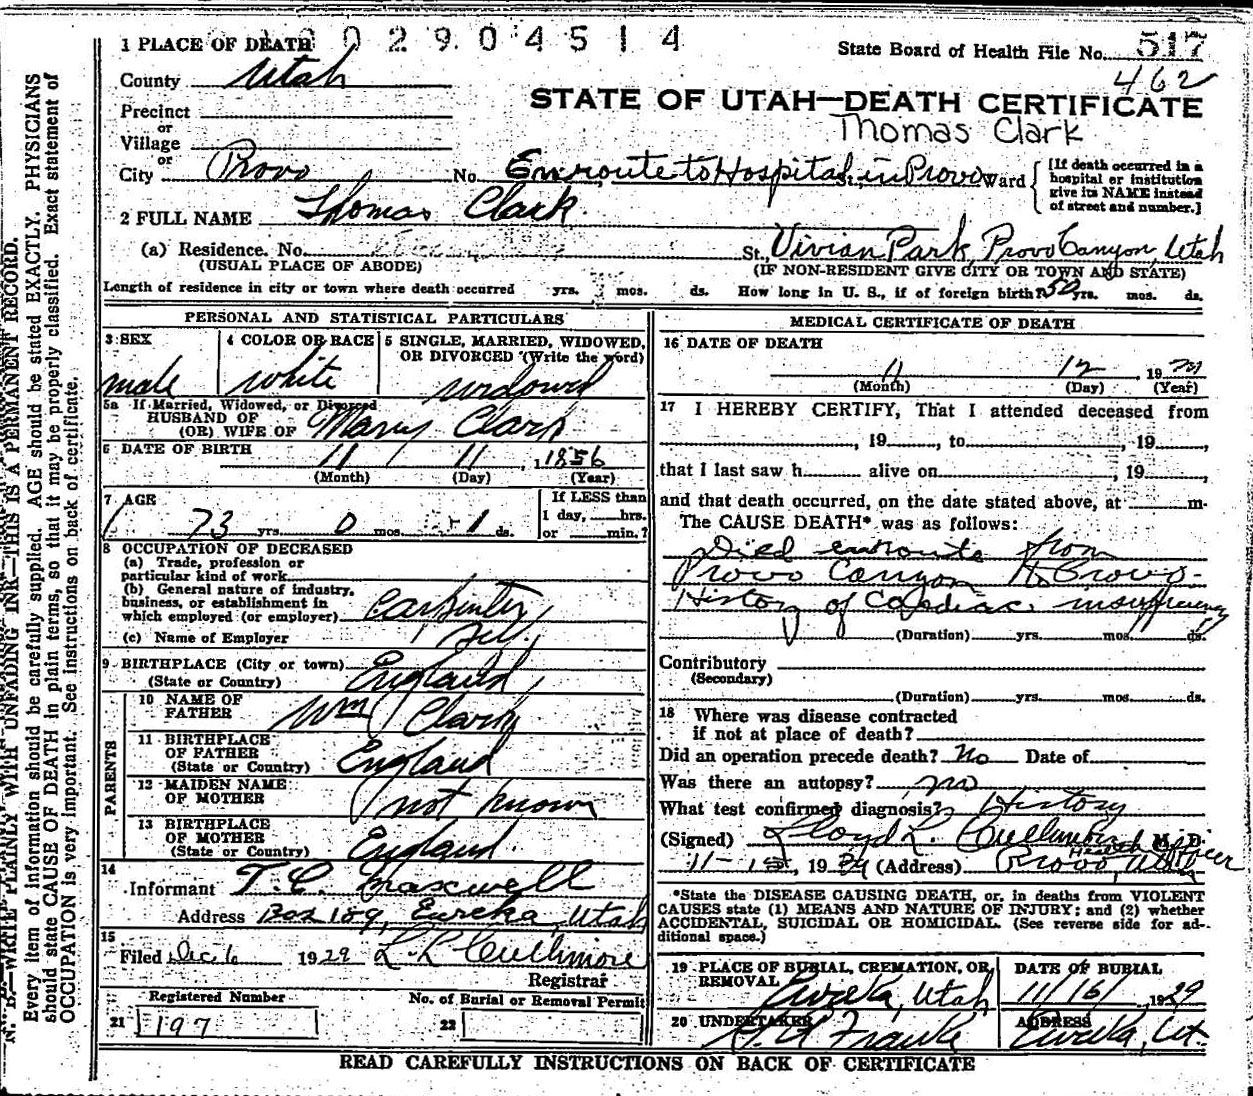 029 04514
1 PLACE OF DEATH
State Board of Health File No. 517
County Utah
462
STATE OF UTAH—DEATH CERTIFICATE
Precinct
Thomas Clark
or
Village
or
City Provo No. Enroute to Hospital St., in Provo Ward
[If death occurred in a hospital or institution give its NAME instead of street and number.]
2 FULL NAME Thomas Clark
(a) Residence. No. St., Vivian Park, Provo Canyon, Utah
(USUAL PLACE OF ABODE) (IF NON-RESIDENT GIVE CITY OR TOWN AND STATE)
Length of residence in city or town where death occurred yrs. mos. ds. How long in U. S., if of foreign birth? 50 yrs. mos. ds.
PERSONAL AND STATISTICAL PARTICULARS
3 SEX
male
4 COLOR OR RACE
white
5 SINGLE, MARRIED, WIDOWED,
OR DIVORCED (Write the word)
widowed
5a If Married, Widowed, or Divorced
HUSBAND OF
(OR) WIFE OF Mary Clark
6 DATE OF BIRTH
11 11 1856
(Month) (Day) (Year)
7 AGE
73 yrs. 0 mos. 1 ds.
If LESS than
1 day, hrs.
or min.?
8 OCCUPATION OF DECEASED
(a) Trade, profession or
particular kind of work
(b) General nature of industry,
business, or establishment in
which employed (or employer) Carpenter
(c) Name of Employer
9 BIRTHPLACE (City or town)
(State or Country) England
PARENTS
10 NAME OF
FATHER Wm Clark
11 BIRTHPLACE
OF FATHER
(State or Country) England
12 MAIDEN NAME
OF MOTHER not known
13 BIRTHPLACE
OF MOTHER
(State or Country) England
14
Informant T. C. Maxwell
Address Box 189, Eureka, Utah
15
Filed Dec. 6 1929 L. L. Cullimore
Registrar
Registered Number
21 197
No. of Burial or Removal Permit
22
MEDICAL CERTIFICATE OF DEATH
16 DATE OF DEATH
11 12 19 29
(Month) (Day) (Year)
17 I HEREBY CERTIFY, That I attended deceased from
, 19 , to , 19 ,
that I last saw h alive on , 19 ,
and that death occurred, on the date stated above, at m.
The CAUSE DEATH* was as follows:
Died enroute from
Provo Canyon to Provo-
History of Cardiac insufficiency
(Duration) yrs. mos. ds.
Contributory
(Secondary)
(Duration) yrs. mos. ds.
18 Where was disease contracted
if not at place of death?
Did an operation precede death? No Date of
Was there an autopsy? no
What test confirmed diagnosis? History
(Signed) Lloyd L. Cullimore M. D.
Health Officer
11-15, 1929 (Address) Provo, Utah
*State the DISEASE CAUSING DEATH, or, in deaths from VIOLENT
CAUSES state (1) MEANS AND NATURE OF INJURY; and (2) whether
ACCIDENTAL, SUICIDAL OR HOMICIDAL. (See reverse side for ad-
ditional space.)
19 PLACE OF BURIAL, CREMATION, OR
REMOVAL
Eureka, Utah
DATE OF BURIAL
11/16/, 1929
20 UNDERTAKER
Franke
ADDRESS
Eureka, Ut.
READ CAREFULLY INSTRUCTIONS ON BACK OF CERTIFICATE
N. B.—WRITE PLAINLY WITH UNFADING INK—THIS IS A PERMANENT RECORD.
Every item of information should be carefully supplied. AGE should be stated EXACTLY. PHYSICIANS
should state CAUSE OF DEATH in plain terms, so that it may be properly classified. Exact statement of
OCCUPATION is very important. See instructions on back of certificate.